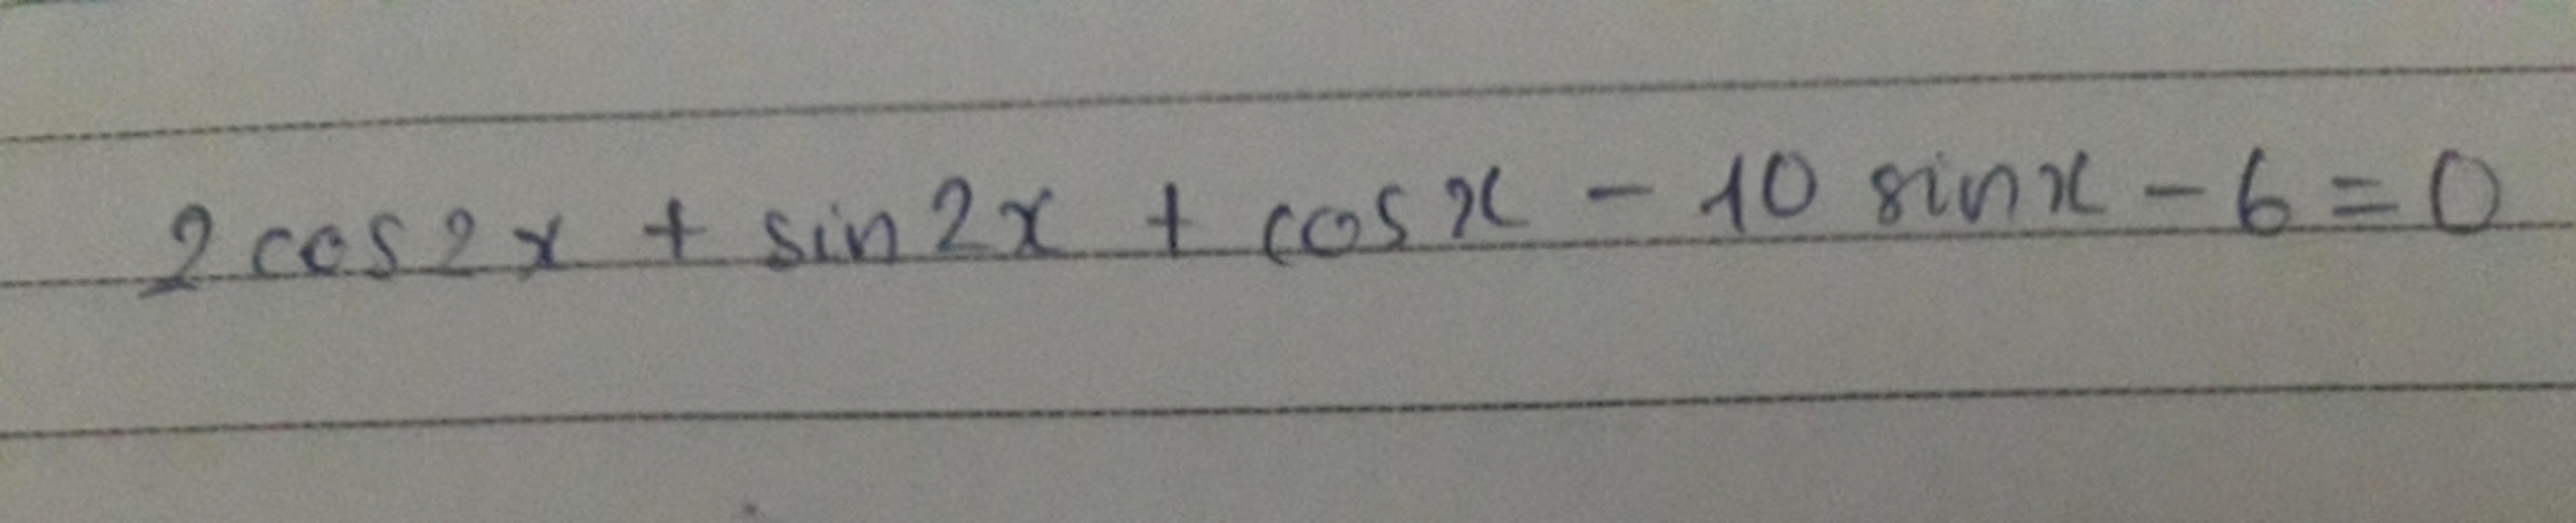 2cos2x + sin2x + cosx - 10 sinx - 6 = 0